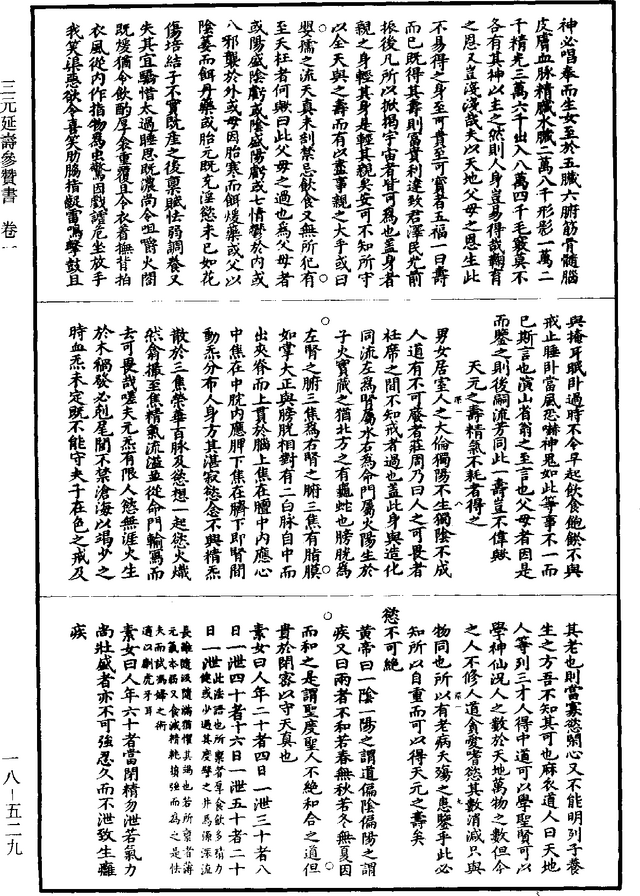 三元延壽參贊書 卷一
一八—五二九
神必唱奉而生女至於五臟六腑筋骨髓腦
皮膚血脉精臟水臟二萬八千形影一萬二
千精光三萬六千出入八萬四千毛竅莫不
各有其神以主之然則人身豈易得哉鞠育
之恩又豈淺淺哉夫以天地父母之恩生此
不易得之身至可貴至可寶者五福一曰壽
而已既得其壽則富貴利達致君澤民光前
振後凡所以掀揭宇宙者皆可為也蓋身者
親之身輕其身是輕其親矣安可不知所守
以全天與之壽而有以盡事親之大乎或曰
嬰孺之流天真未剖禁忌飲食又無所犯有
至夭枉者何歟曰此父母之過也為父母者
或陽盛陰虧或陰盛陽虧或七情鬱於內或
八邪襲於外或母因胎寒而餌煖藥或父以
陰萎而餌丹藥或胎元既充淫慾未已如花
傷培結子不實既產之後稟賦怯弱調養又
失其宜驕惜太過睡思既濃尚令咀嚼火閤
既煖猶令飲酌厚衾重覆且令衣着撫背拍
衣風從內作指物為虫驚因戲謔危坐放手
我笑渠惡欲令喜笑肋膈指齪雷鳴擊鼓且
與掩耳眠卧過時不令早起飲食飽飫不與
戒止睡卧當風恐嚇神鬼如此等事不一而
已斯言也演山省翁之至言也父母者因是
而鑒之則後嗣流芳同此一壽豈不偉歟
天元之壽精氣不耗者得之
男女居室人之大倫獨陽不生獨陰不成
人道有不可廢者莊周乃曰人之可畏者
衽席之間不知戒者過也蓋此身與造化
同流左為腎屬水右為命門屬火陽生於
子火實藏之猶北方之有龜蛇也膀胱為
左腎之腑三焦為右腎之腑三焦有脂膜
如掌大正與膀胱相對有二白脉自中而
出夾脊而上貫於腦上焦在膻中內應心
中焦在中脘內應脾下焦在臍下即腎間
動炁分布人身方其湛寂慾念不興精炁
散於三焦榮華百脉及慾想一起慾火熾
然翕撮至焦精氣流溢並從命門輸瀉而
去可畏哉嗟夫元炁有限人慾無涯火生
於木禍發必剋尾閭不禁滄海以竭少之
時血炁未定既不能守夫子在色之戒及
其老也則當寡慾閑心又不能明列子養
生之方吾不知其可也麻衣道人曰天地
人等列三才人得中道可以學聖賢可以
學神仙況人之數於天地萬物之數但今
之人不修人道貪愛嗜慾其數消減只與
物同也所以有老病夭殤之患鑒乎此必
知所以自重而可以得天元之壽矣
慾不可絶
黃帝曰一陰一陽之謂道偏陰偏陽之謂
疾又曰兩者不和若春無秋若冬無夏因
而和之是謂聖度聖人不絶和合之道但
貴於閉密以守天真也
素女曰人年二十者四日一泄三十者八
日一泄四十者十六日一泄五十者二十
日一泄
素女曰人年六十者當閉精勿泄若氣力
尚壯盛者亦不可強忍久而不泄致生癰
疾